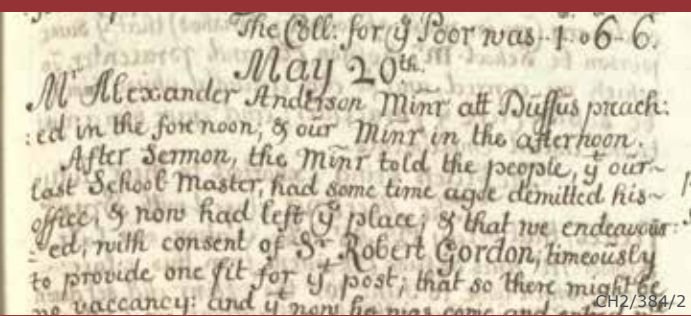 The Coll: for ỹ Poor was - 1 - 06 - 6.
May 20th.
Mr Alexander Anderson Minr att Duffus preach:
:ed in the forenoon, & our Minr in the afternoon.
After Sermon, the Minr told the people, yt our~
last School Master, had some time agoe demitted his~
office, & now had left ye place; & that we endeavour:
:ed, with consent of Sr Robert Gordon, timeously
to provide one fit for yt post; that so there might be
no vaccancy: and yt now he was come and
CH2/384/2